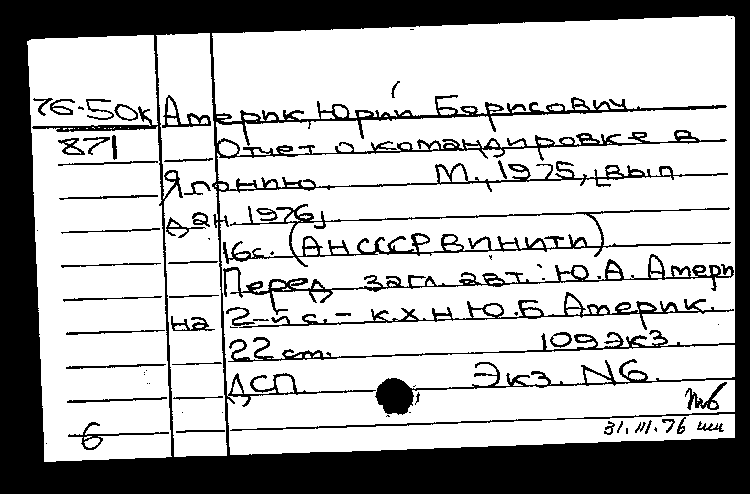 76-50к Америк, Юрий Борисович.
871 Отчет о командировке в
Японию. М., 1975, [вып.
дан. 1976].
16с. (АН СССР ВИНИТИ).
Перед загл. авт.: Ю.А. Амери
на 2-й с. - к.х.н Ю.Б Америк.
22 cm. 109 экз.
ДСП Экз. N6.
6 31.III.76